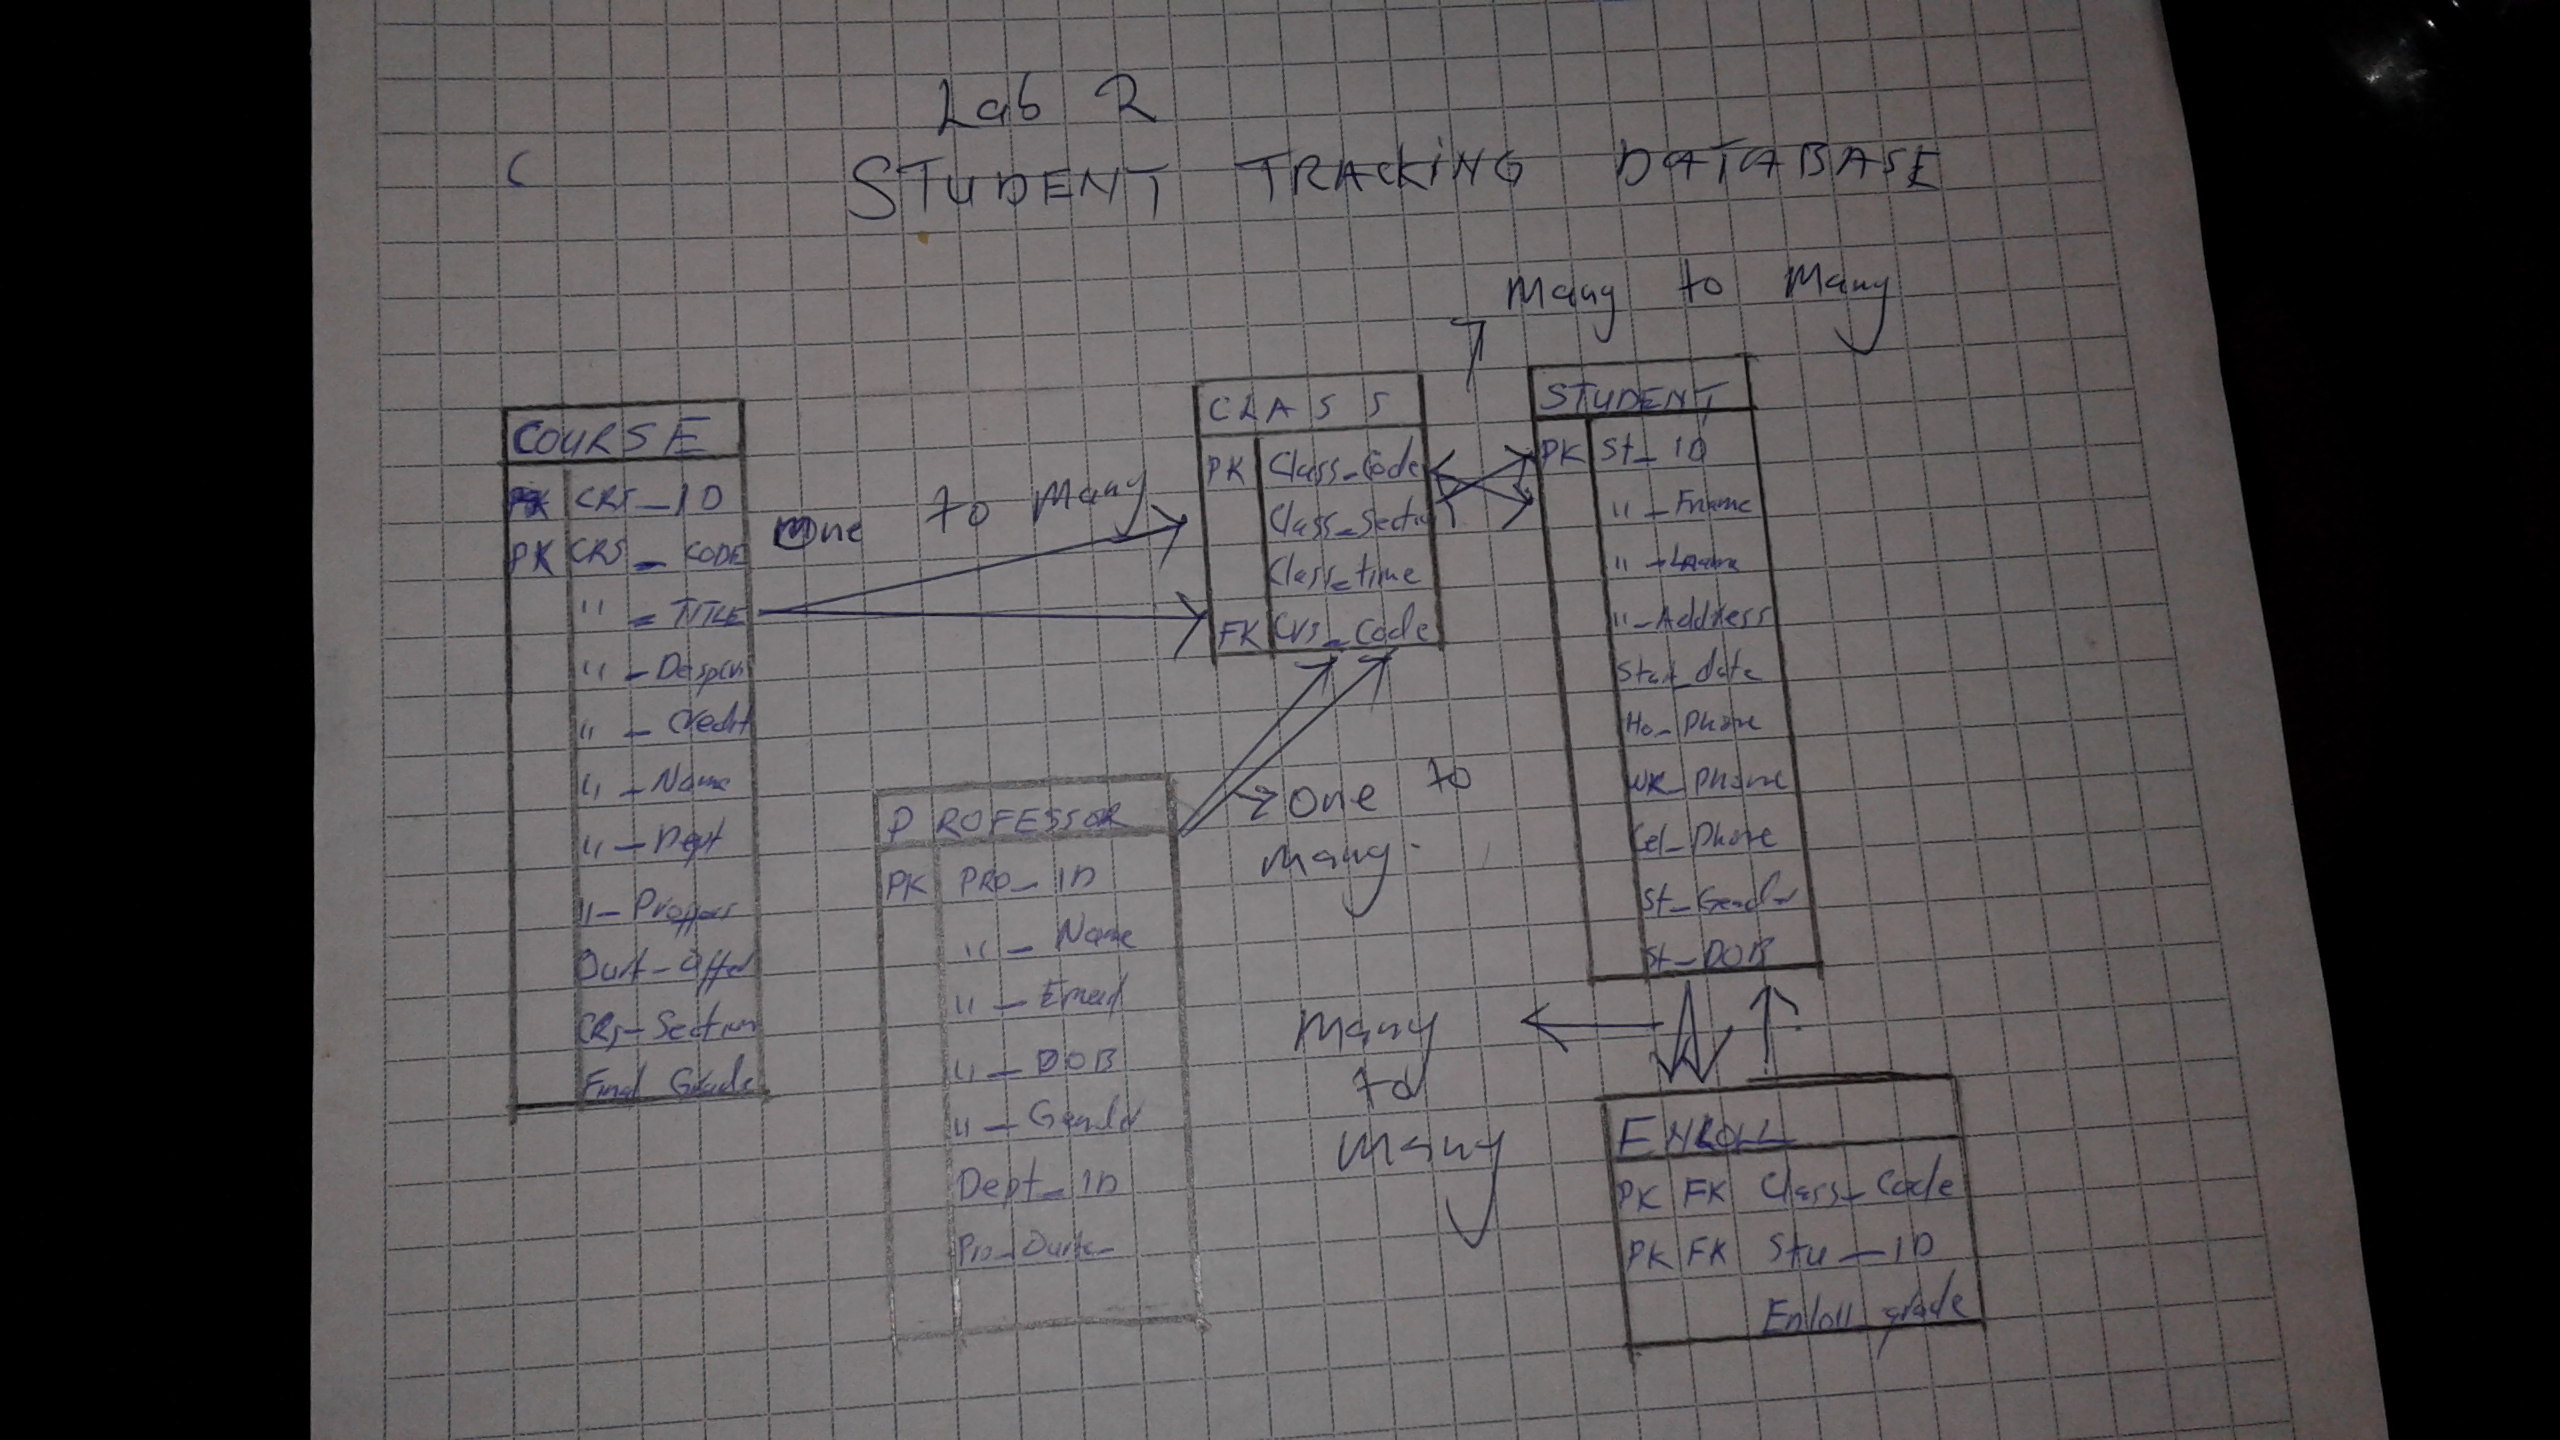 Lab 2
STUDENT TRACKING DATABASE
Many to Many
COURSE
PK CRS_ID
PK CRS_CODE
" = TITLE
" - Credit
" - Name
" - Dept
CRS-Section
Final Grade
One to Many
CLASS
PK Class_Code
Class_Section
Class_time
FK Crs_Code
STUDENT
PK St_ID
" - Fname
" - Address
Start_date
Ho_Phone
WK_Phone
Cel_Phone
St_Gender
St_DOB
PROFESSOR
PK PRO_ID
" - Name
" - Email
" - DOB
" - Gender
Dept_ID
One to
Many
Many
to
Many
ENROLL
PK FK Class_Code
PK FK Stu_ID
Enroll_grade